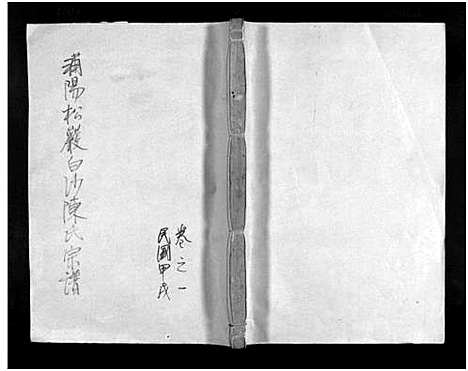 浦陽松嚴白沙陳氏宗譜
卷之一
民國甲戌